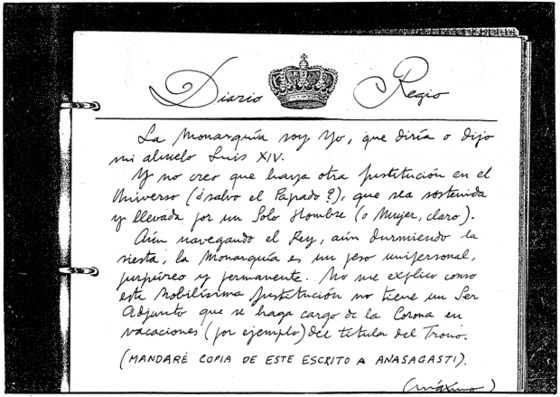 Diario Regio
La Monarquía soy Yo, que diría o dijo
mi abuelo Luis XIV.
Y no creo que haya otra Institución en el
Universo (¿salvo el Papado?), que sea sostenida
y llevada por un Solo Hombre (o Mujer, claro).
Aún navegando el Rey, aún durmiendo la
siesta, la Monarquía es un peso unipersonal,
purpúreo y permanente. No me explico como
esta Nobilísima Institución no tiene un Ser
Adjunto que se haga cargo de la Corona en
vacaciones (por ejemplo) del titular del Trono.
(MANDARÉ COPIA DE ESTE ESCRITO A ANASAGASTI).
(máximo)